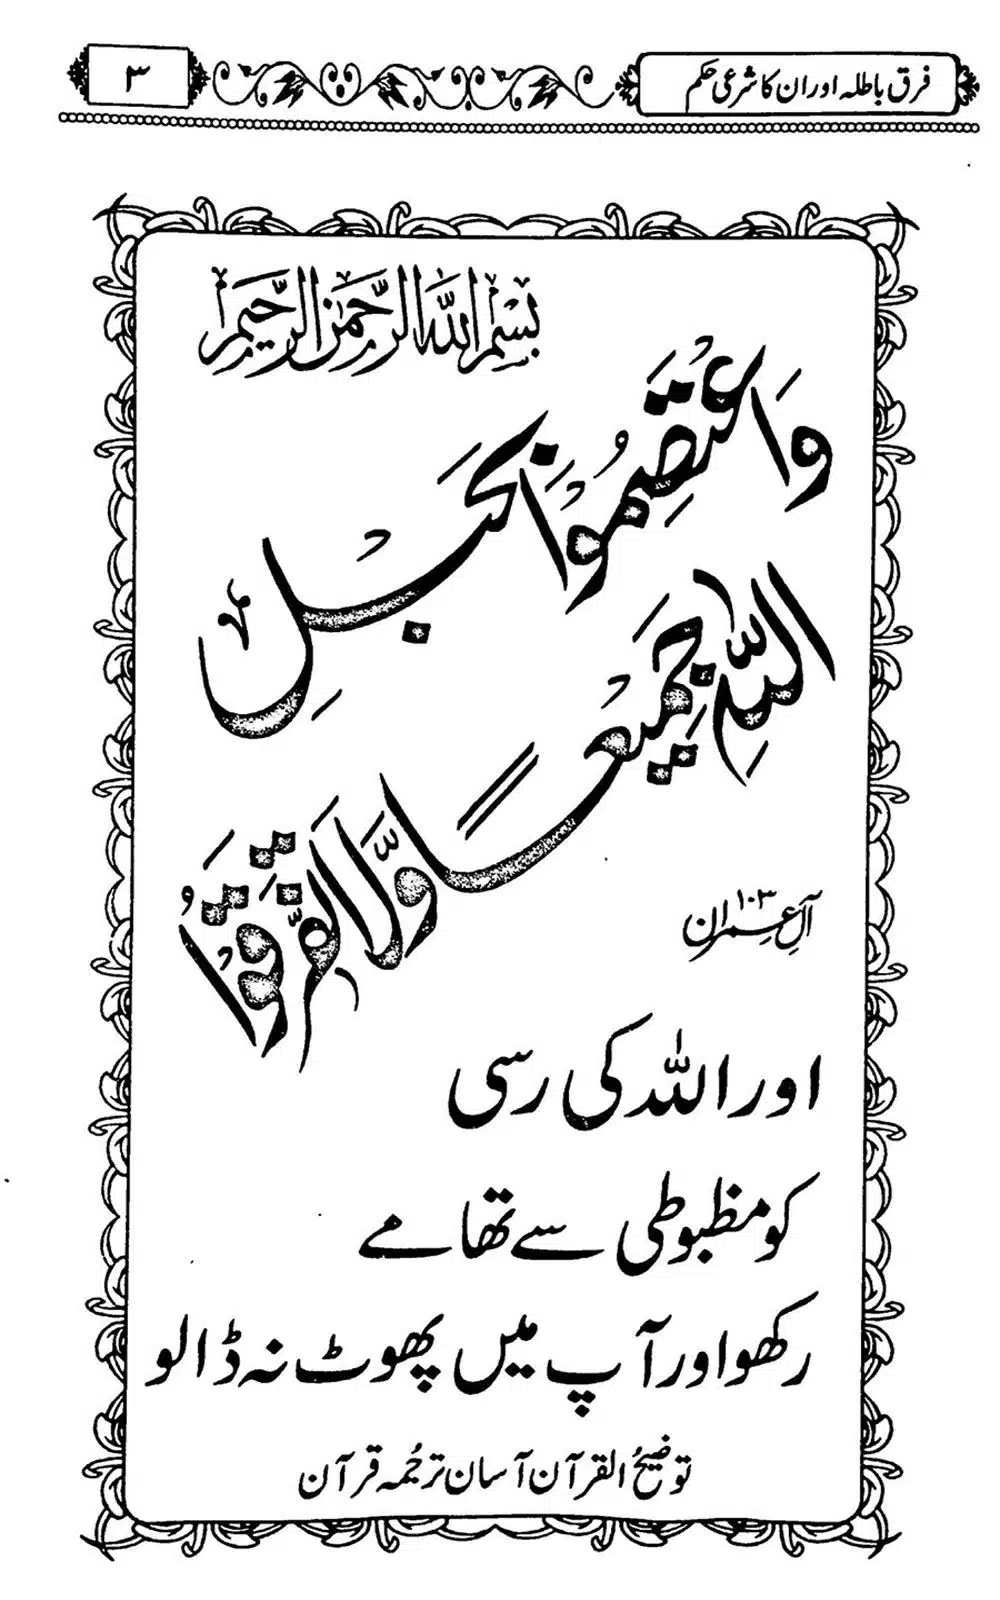 فرق باطلہ اور ان کا شرعی حکم
۳
بِسْمِ اللهِ الرَّحْمٰنِ الرَّحِيْمِ
وَاعْتَصِمُوْا بِحَبْلِ
اللّٰهِ جَمِيْعًا وَّلَا تَفَرَّقُوْا
آلِ عِمران ۱۰۳
اور اللہ کی رسی
کو مظبوطی سے تھامے
رکھو اور آپ میں پھوٹ نہ ڈالو
توضیحُ القرآن آسان ترجُمہ قرآن